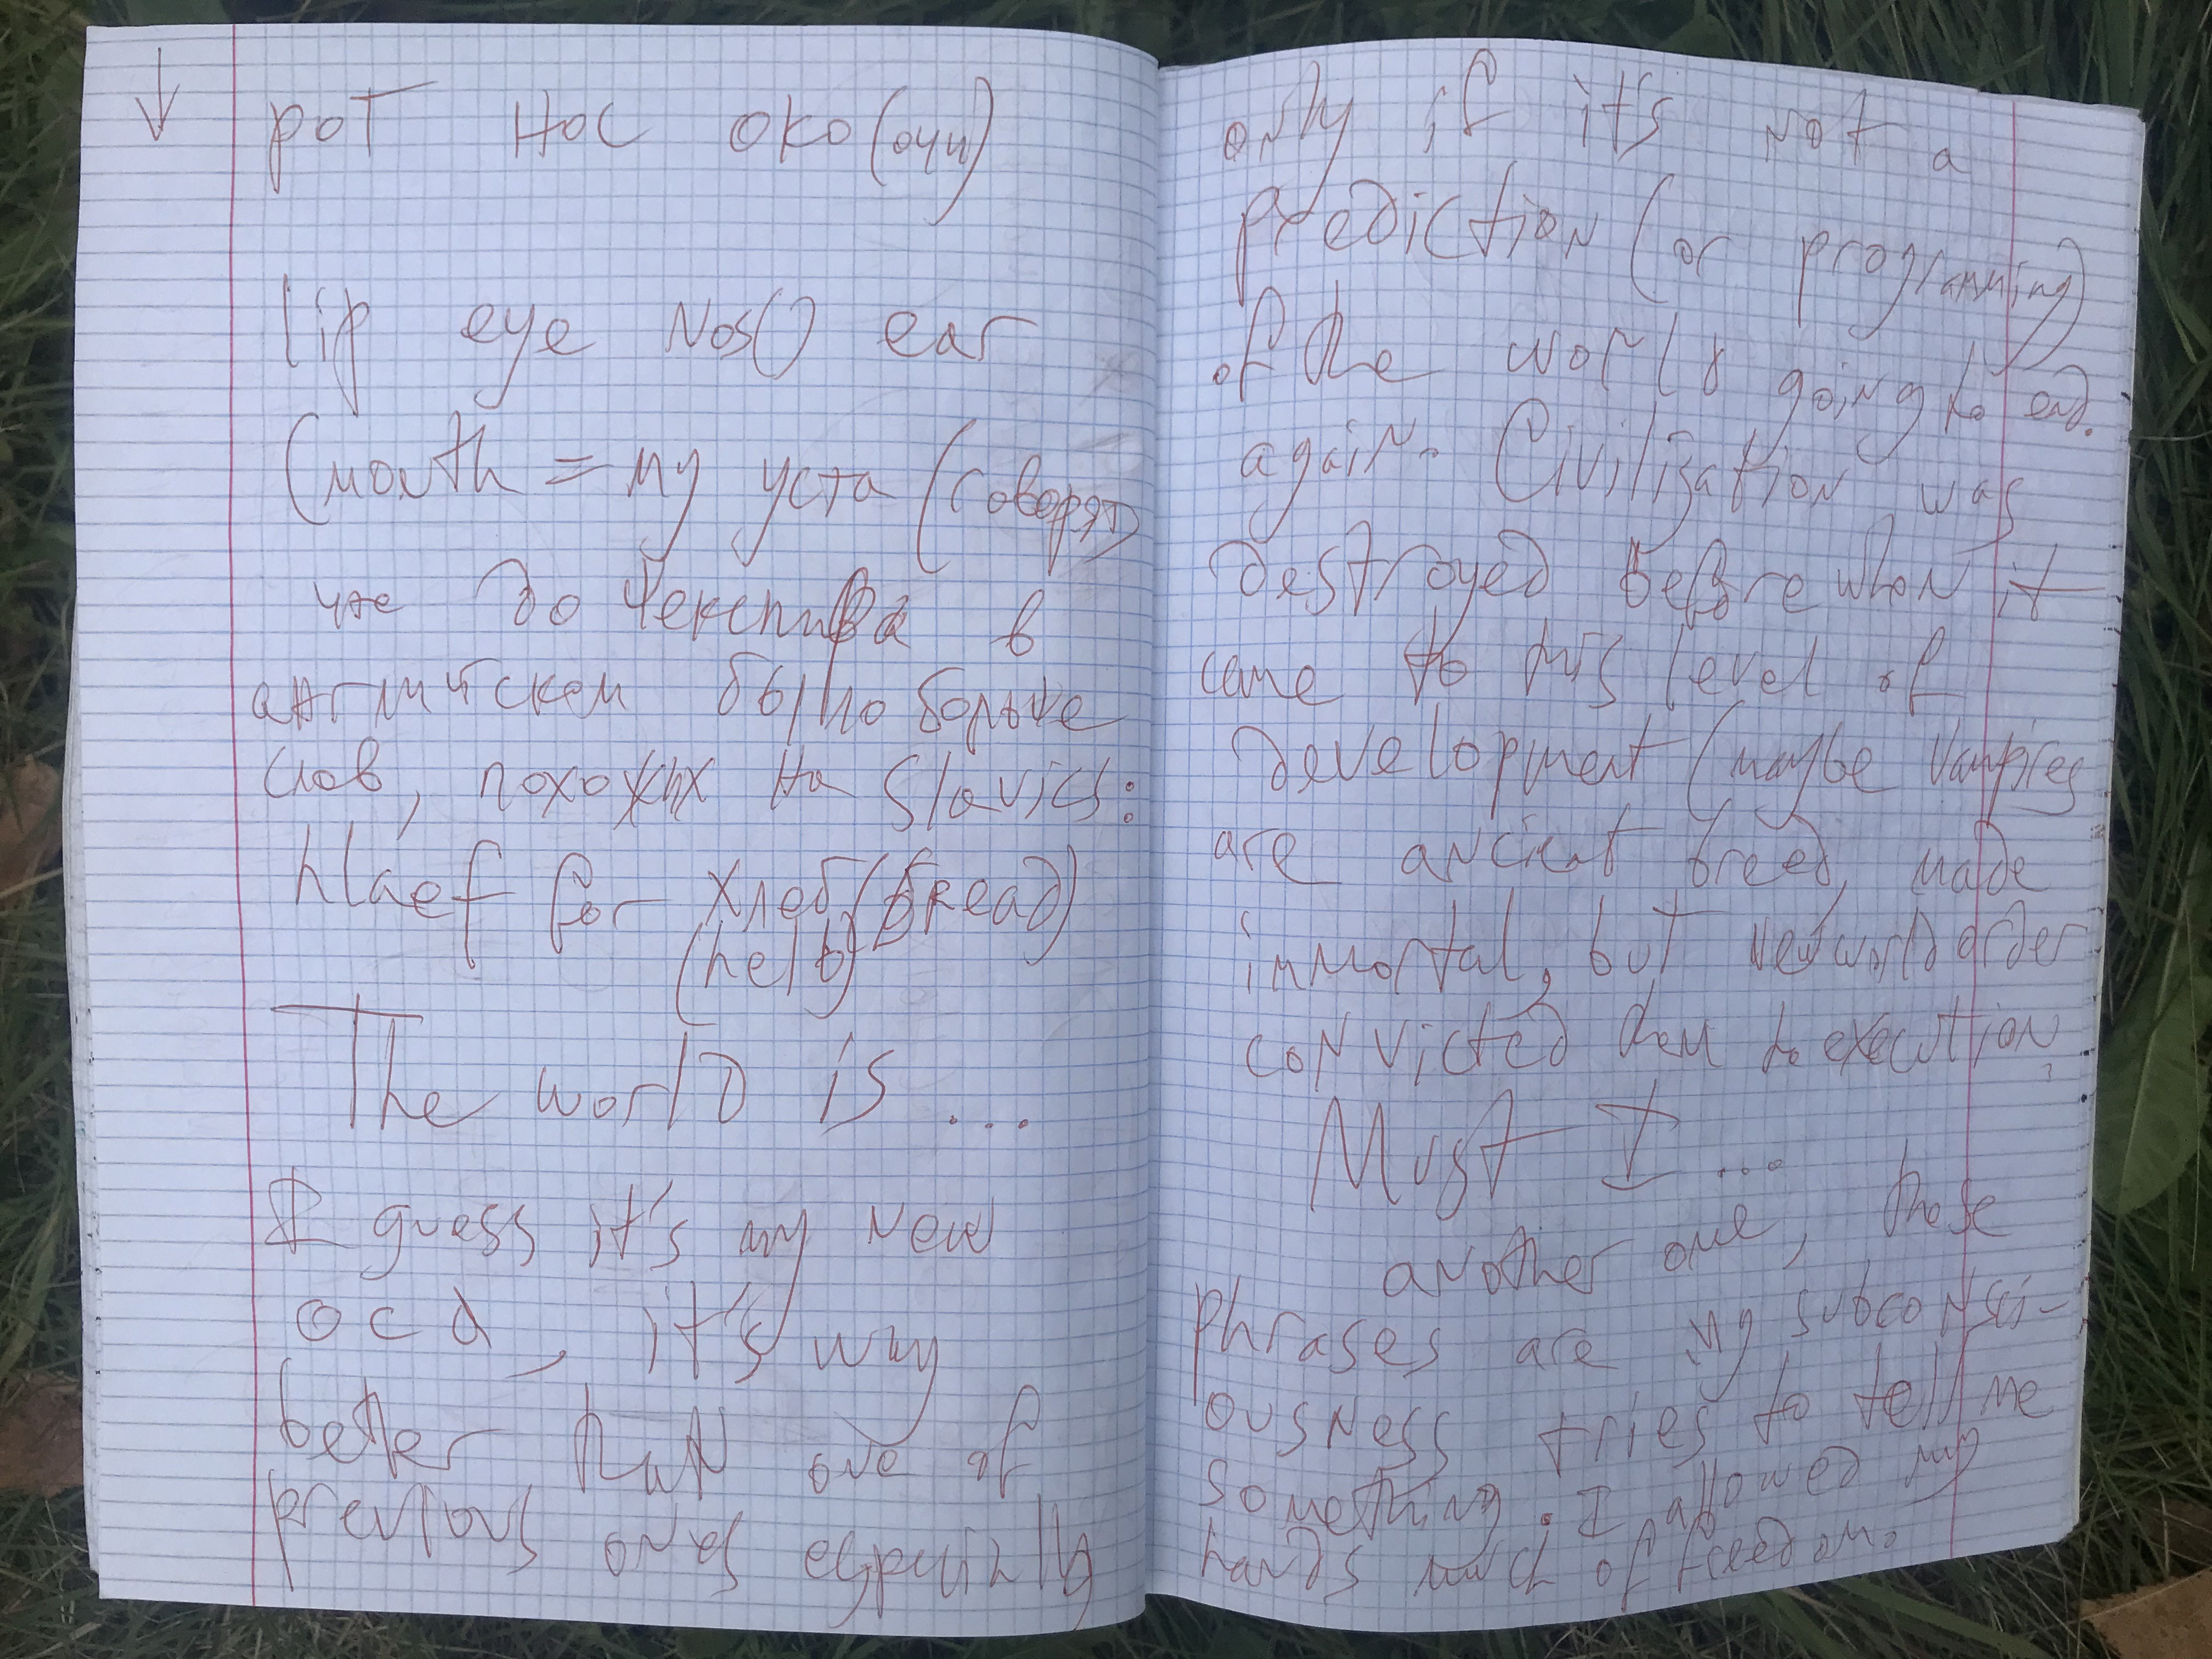 ↓ рот нос око (очи)
lip eye nos() ear
(mouth = my уста (говорят
что до Шекспира в
английском было больше
слов, похожих на Slavics:
hlaef for хлеб (bread)
(helby)
The world is ...
I guess it's my new
OCD, it's why
better than one of
previous ones elpecially
only if its not a
prediction (or programming)
of the world going to end.
again. Civilisation was
destroyed before when it
came to this level of
development (maybe vampires
are ancient breed made
immortal, but newworld order
convicted them to execution?
Must I... those
another one,
phrases are my subconsci-
ousness tries to tell me
something: I allowed my
hands much of freedom.